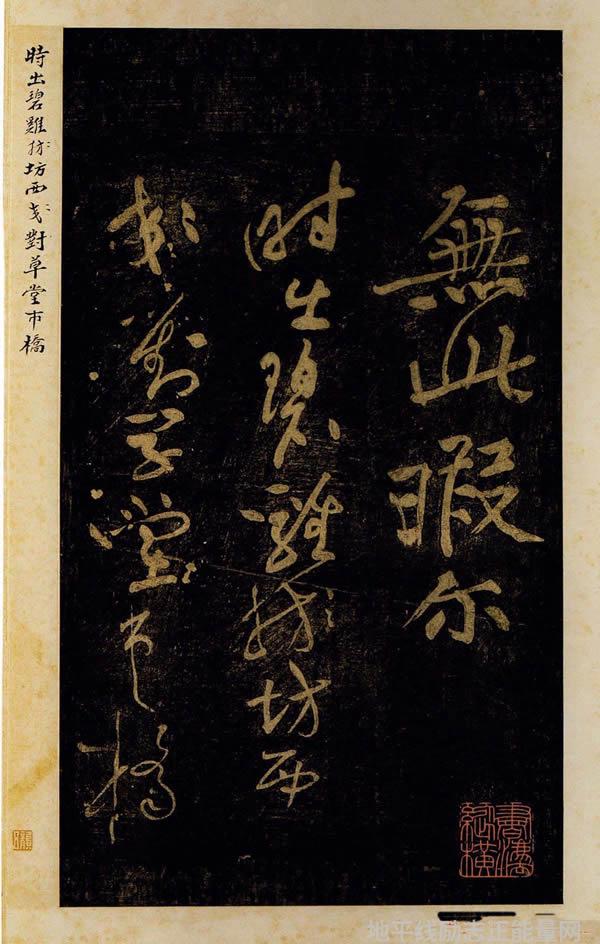 無此暇尔
時出碧雞坊西
郊對草堂市橋
時出碧雞坊西對草堂市橋
地平线励志正能量网